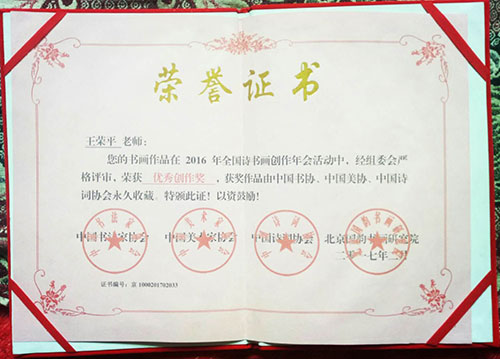 荣誉证书
王荣平 老师：
您的书画作品在 2016 年全国诗书画创作年会活动中，经组委会严
格评审，荣获 优秀创作奖 ，获奖作品由中国书协、中国美协、中国诗
词协会永久收藏。特颁此证！以资鼓励！
中国书法家协会 中国美术家协会 中国诗词协会 北京国韵书画研究院
二〇一七年二月
证书编号：京 1000201702033